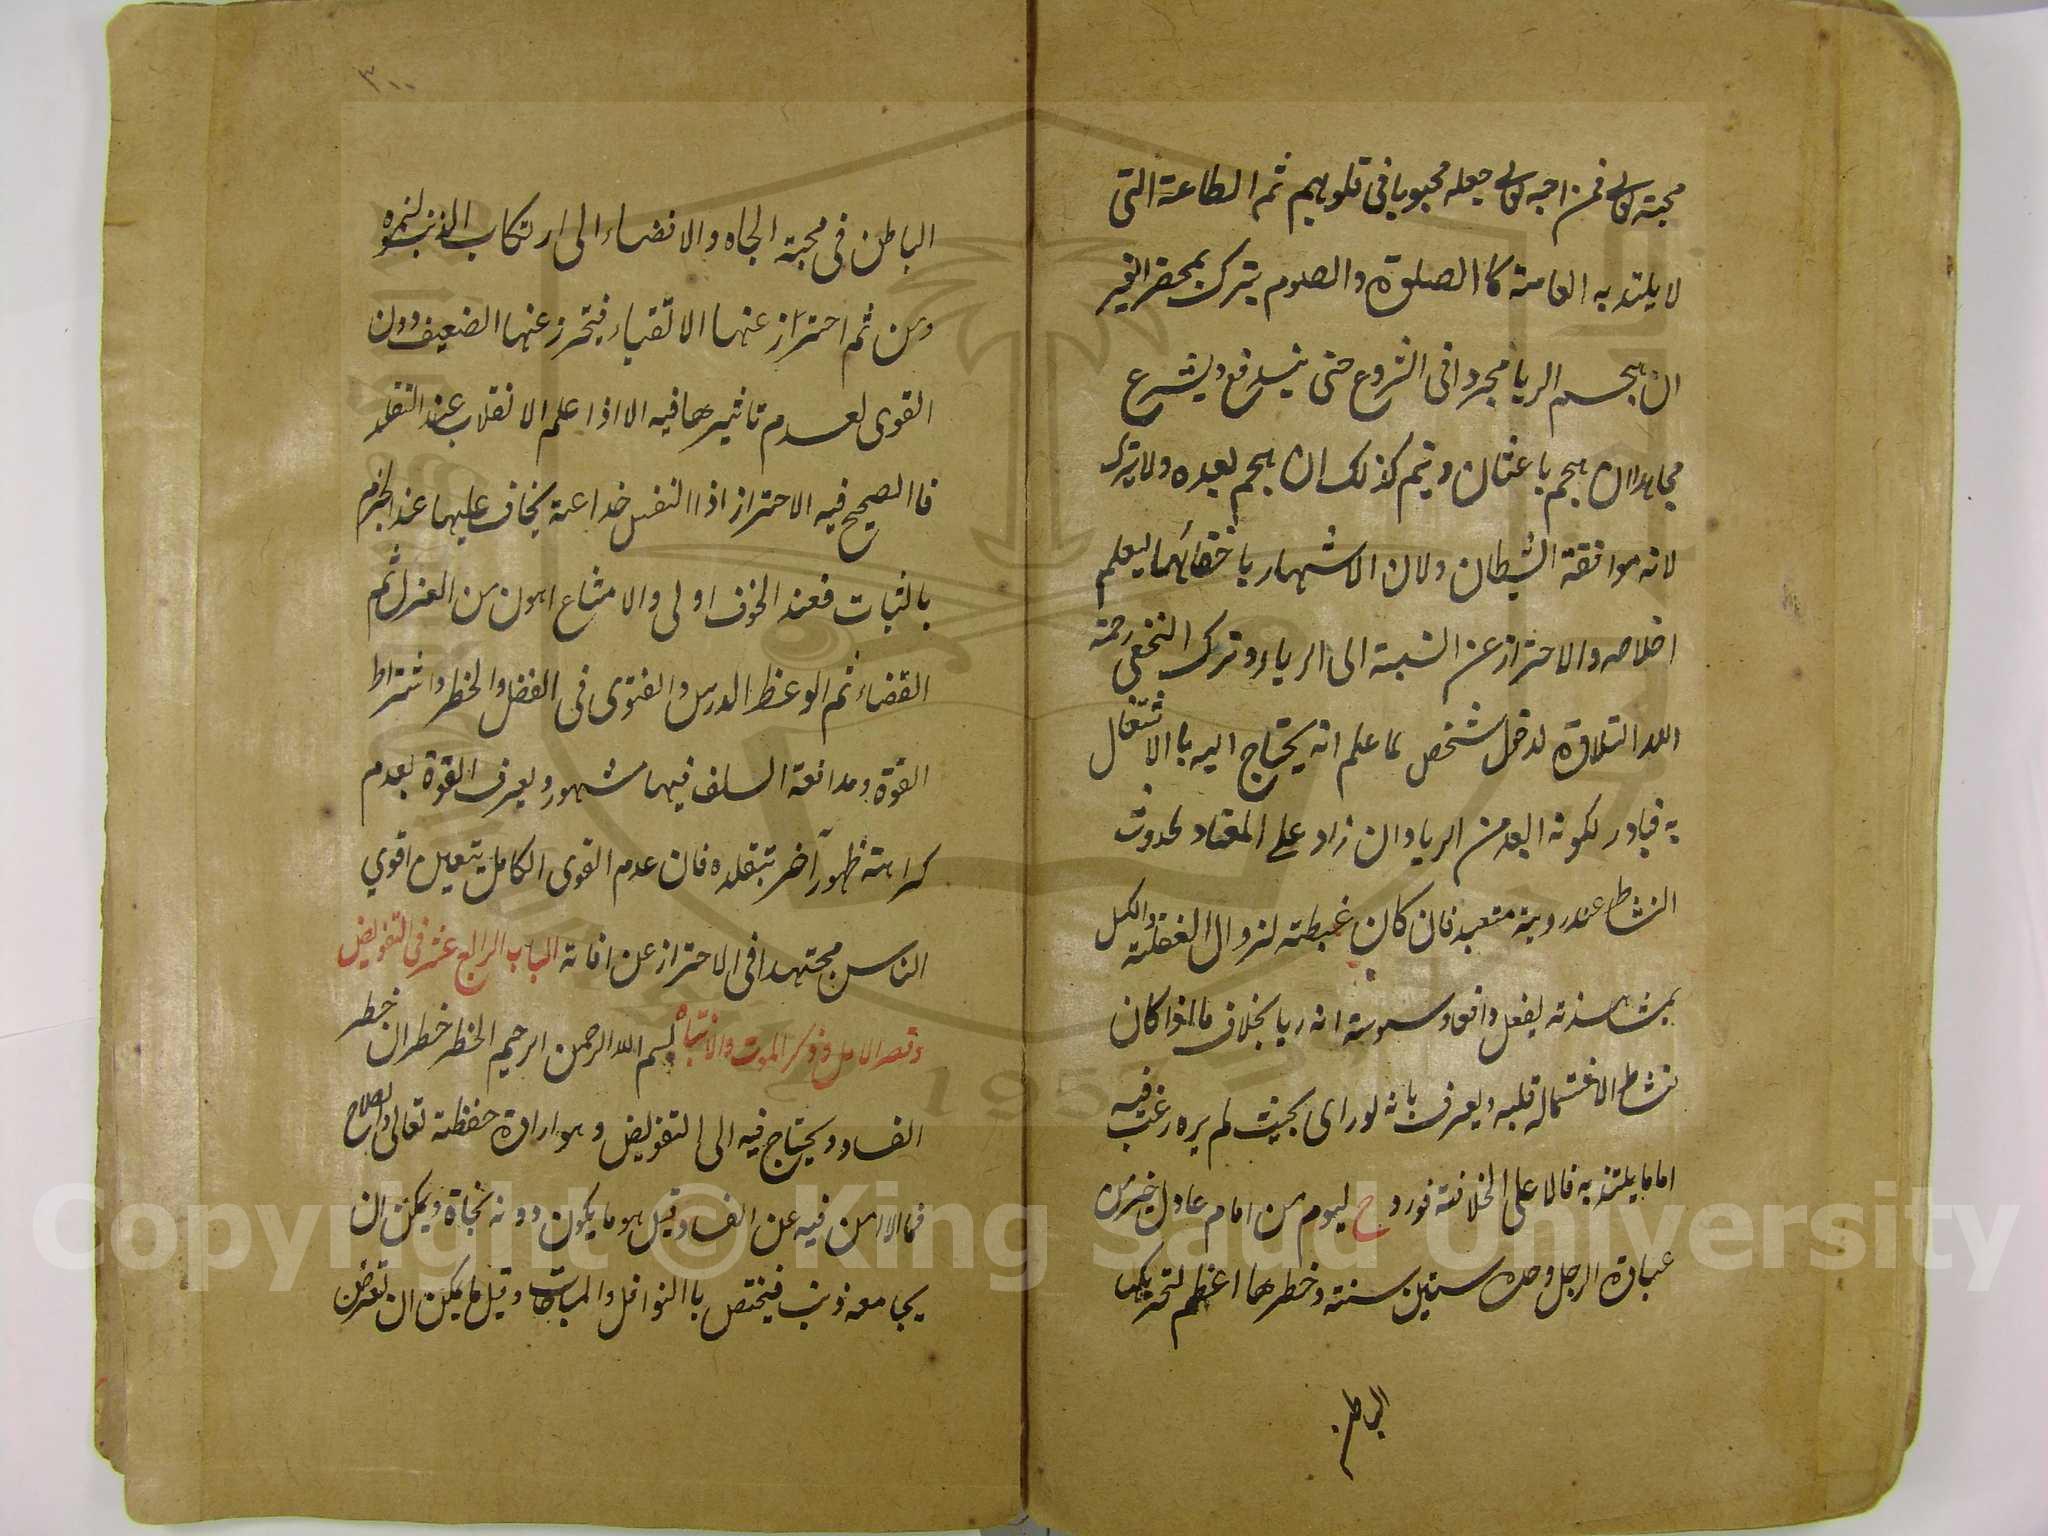 محبته تعالى فمن احبه تعالى جعله محبوبا في قلوبهم ثم الطاعة التى
لا يلتذ به العامة كا الصلوة والصوم يترك بمحضر الغير
ان هجم الريا مجردا فى الشروع حتى يندفع ويشرع
مجاهدا ان هجم باعثان ويتم كذلك ان هجم بعده ولا يترك
لانه موافقة الشيطان ولان الاشتهار باخفائهما ليعلم
اخلاصه والاحتراز عن النسبة الى الرياء وترك النخعى رحمة
الله التلاوة لدخل شخص لما علم انه يحتاج اليه با الاشتغال
به فبادر لكونه ابعد من الريا وان زاد على المعتاد لحدوث
النشاط عند روية متعبد فان كان غبطته لزوال الغفلة والكسل
بمشاهدته يفعل وسوسته انه ريا بخلاف ما اذا كان
نشاط قلبه ويعرف بانه لو راى بحيث لم يره رغب فيه
اما ما يلتذ به فالاعلى الخلافة فورد ح ليوم من امام عادل خير من
عبادة الرجل وحده ستين سنة وخطرها اعظم لتحريك
الباطن
٣٠٠
الباطن فى محبة الجاه والافضاء الى ارتكاب الذنب لنحوه
ومن ثم احتراز عنها الاتقياء فيتحرز عنها الضعيف دون
القوى لعدم تاثيرها فيه الا اذا علم الانقلاب عند التقلد
فا الصحيح فيه الاحتراز اذا النفس خداعة يخاف عليها عند الجزم
بالثبات فعند الخوف اولى والامتناع اهون من العزل ثم
القضاء ثم الوعظ الدرس والفتوى فى الفضل والخطر واشتراط
القوة ومدافعة السلف فيها مشهور ويعرف القوة بعدم
كراهته ظهور آخر بتقلده فان عدم القوى الكامل يتعين اقوي
الناس مجتهدا فى الاحتراز عن افاته الباب الرابع عشر فى التفويض
وقصر الامل وذكر الموت والانتباه بسم الله الرحمن الرحيم الخطر خطران خطر
الفساد ويحتاج فيه الى التفويض وهو ارادة حفظته تعالى والصلاح
فما لا امن فيه عن الفساد وقيل هو ما يكون دونه نجاة ويمكن ان
يجامعه ذنب فيختص با النوافل والمباحات وقيل ما يمكن ان تعترض
Copyright © King Saud University
1957